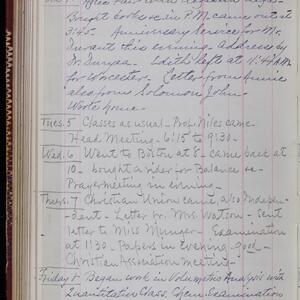 Bright bookcase in P.M. came out at
3:45. Anniversary Service for Mr.
Durant this evening. Address by
Dr. Duryea. Edith left at 11:49 A.M.
for Worcester. Letter from Annie
also from Solomon John.
Wrote home.
Tues. 5 Classes as usual - Prof. Niles came
Head Meeting - 6:15 to 9:30 -
Wed. 6 Went to Boston at 8 - came back at
10 - bought a rider for Balance &c
Prayer meeting in evening -
Thurs. 7 Christian Union came, also Indepen-
dent - Letter fr. Mrs. Watson - sent
letter to Miss Munger - Examination
at 11:30 - Papers in Evening - good -
Christian Association meeting -
Friday 8 Began work in Volumetric Analysis with
Quantitative Class. Chem. Examination